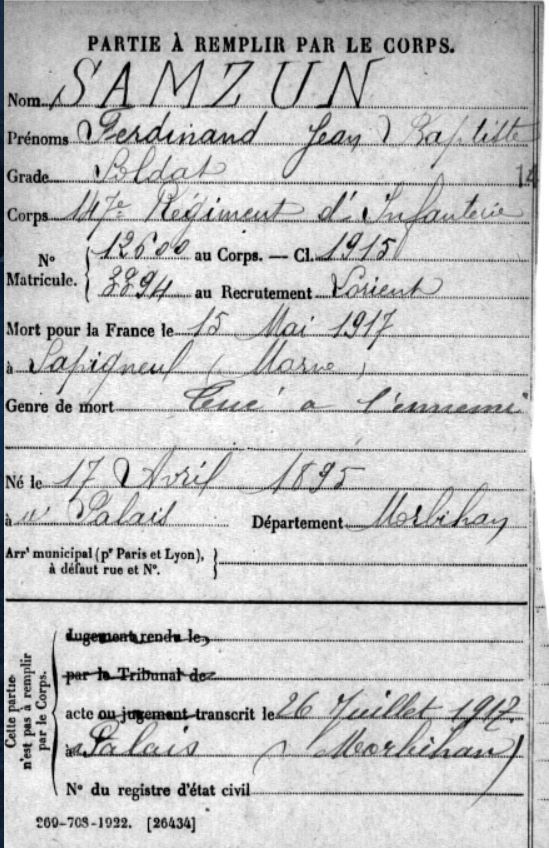 PARTIE À REMPLIR PAR LE CORPS.
Nom SAMZUN
Prénoms Ferdinand Jean Baptiste
Grade Soldat
14
Corps 147e Régiment d'Infanterie
No Matricule. { 12600 au Corps. — Cl. 1915
3894 au Recrutement Lorient
Mort pour la France le 15 Mai 1917
à Sapigneul (Marne)
Genre de mort Tué a l'ennemi
Né le 17 Avril 1895
à Palais Département Morbihan
Arrt municipal (pr Paris et Lyon), }
à défaut rue et No.
Cette partie n'est pas à remplir par le Corps.
Jugement rendu le
par le Tribunal de
acte ou jugement transcrit le 26 Juillet 1917.
à Palais (Morbihan)
No du registre d'état civil
269-708-1922. [26434]